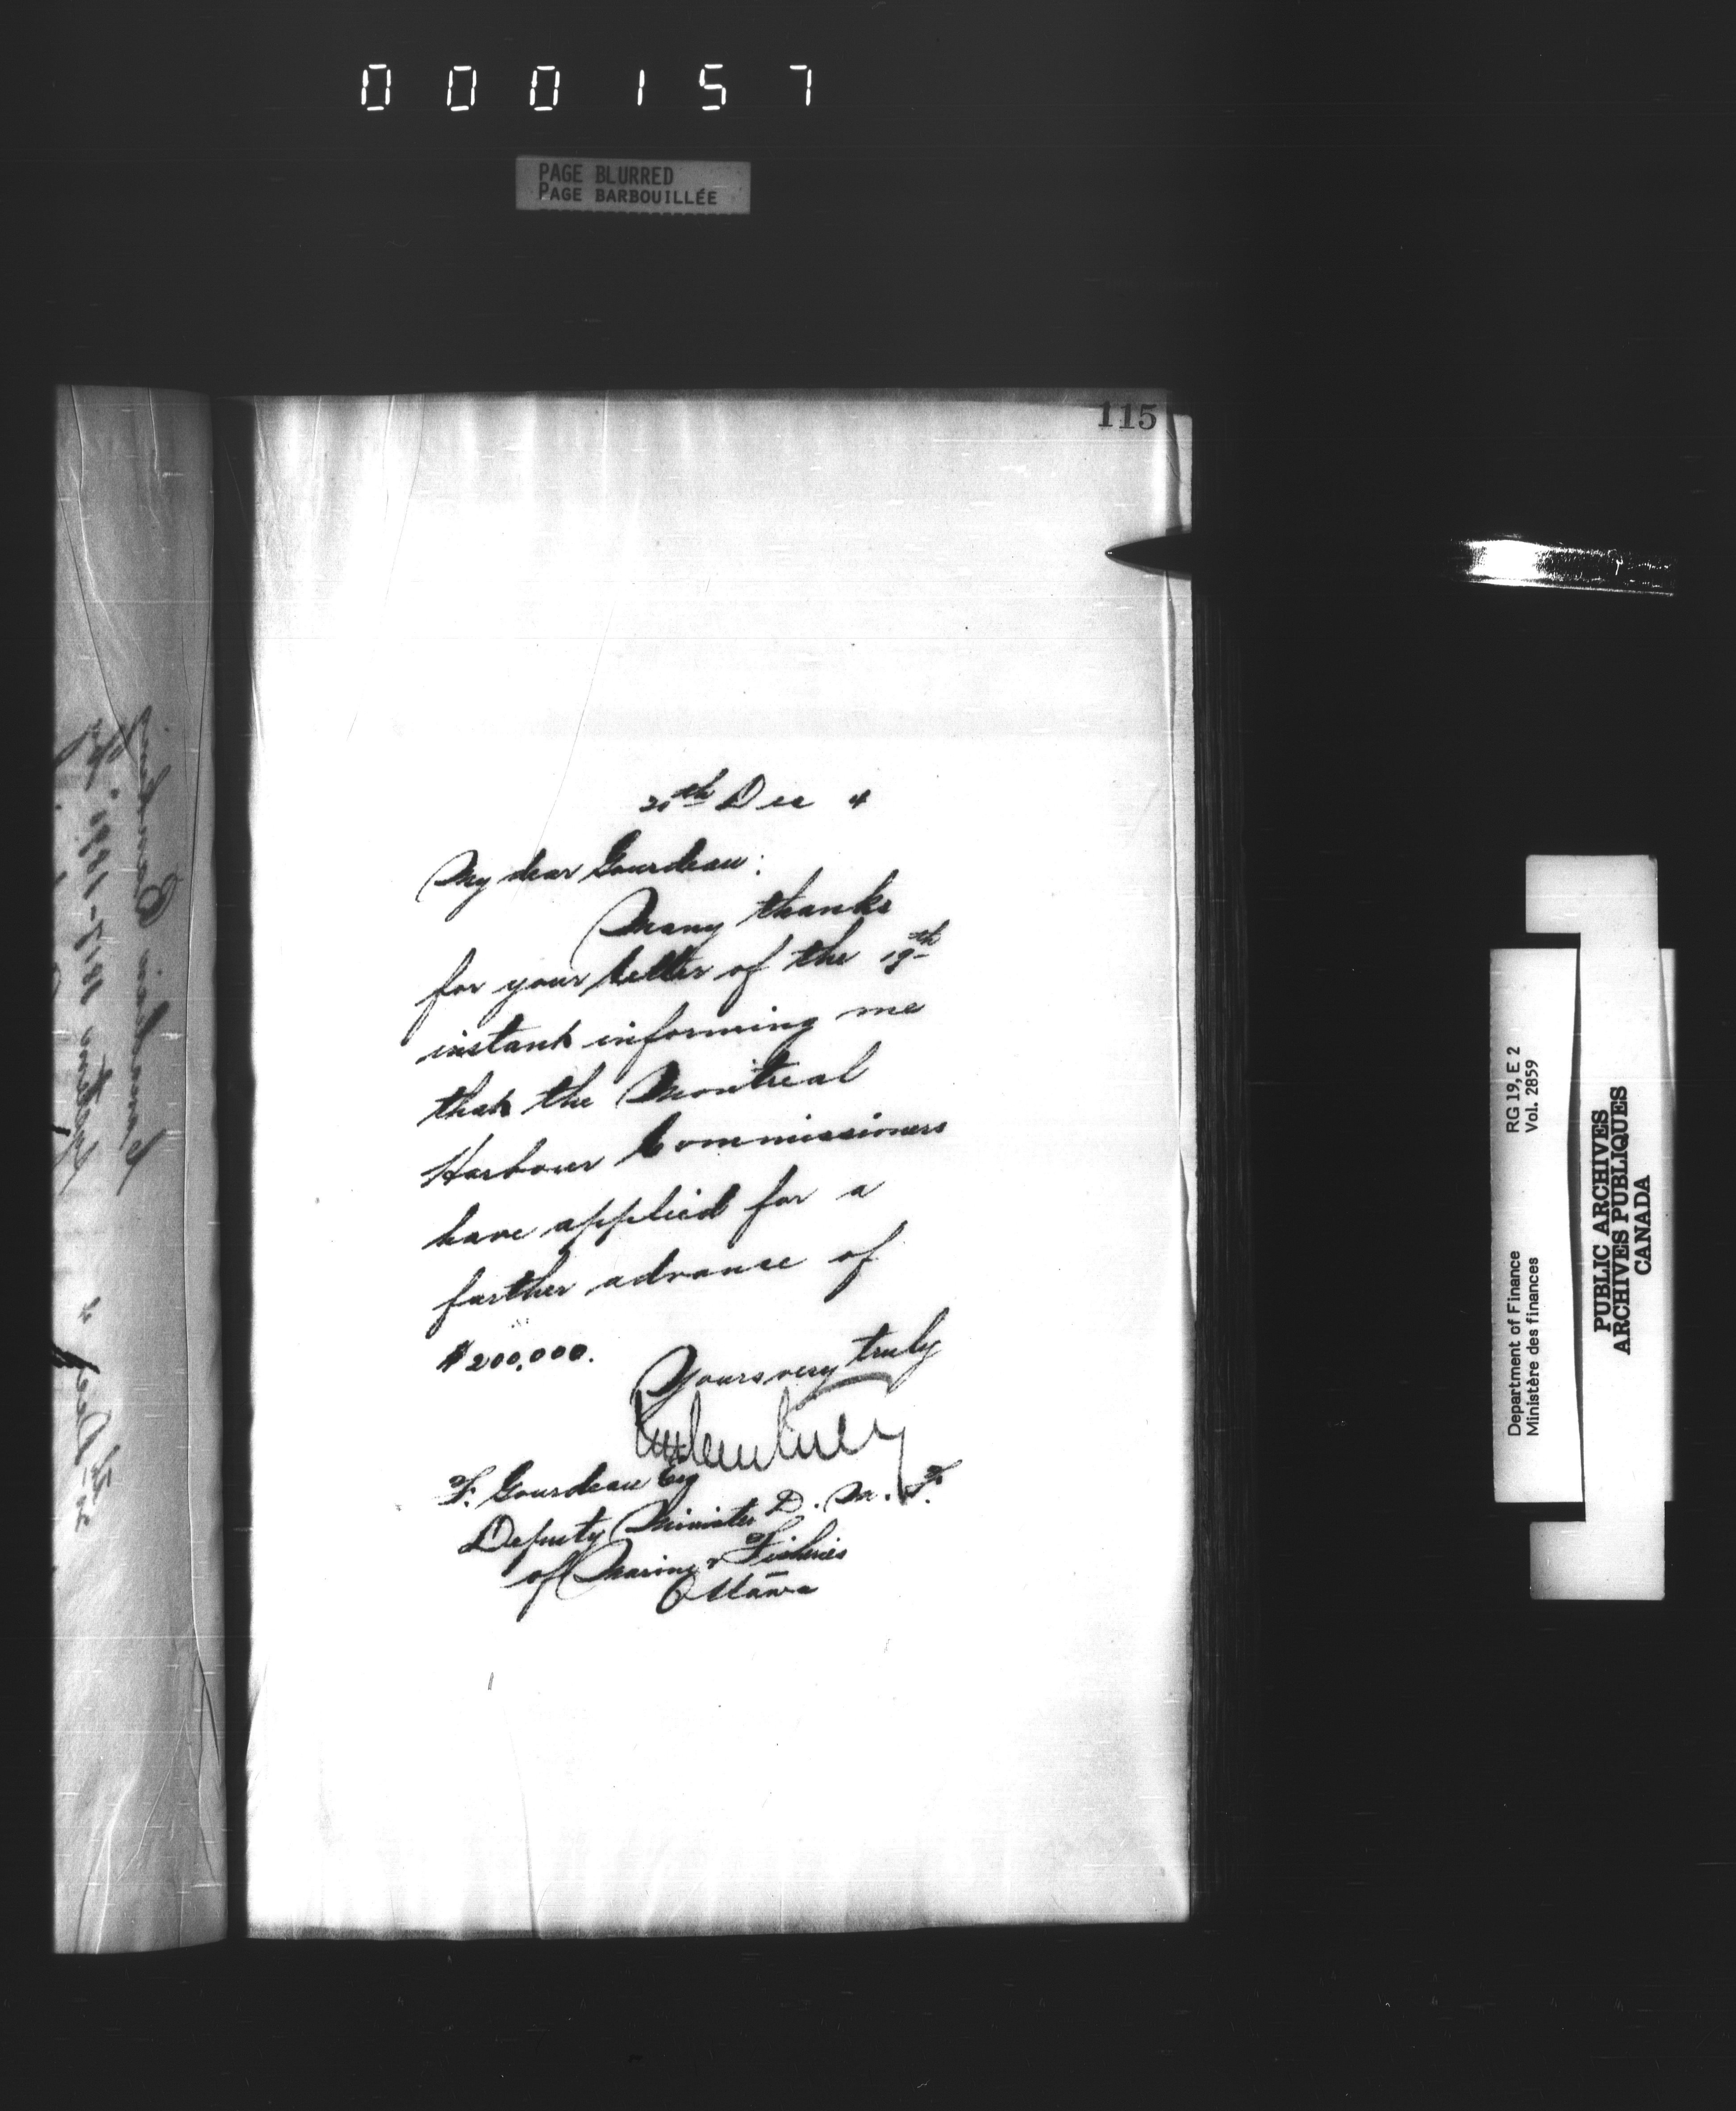 000157
PAGE BLURRED
PAGE BARBOUILLÉE
115
20th Dec 4
My dear Gourdeau:
Many thanks
for your letter of the 19th
instant informing me
that the Montreal
Harbour Commissioners
have applied for a
further advance of
$200,000.
Yours very truly
F. Gourdeau Esq
Deputy Minister D. M. F.
of Marine & Fisheries
Ottawa
RG 19, E 2
Vol. 2859
Department of Finance
Ministère des finances
PUBLIC ARCHIVES
ARCHIVES PUBLIQUES
CANADA